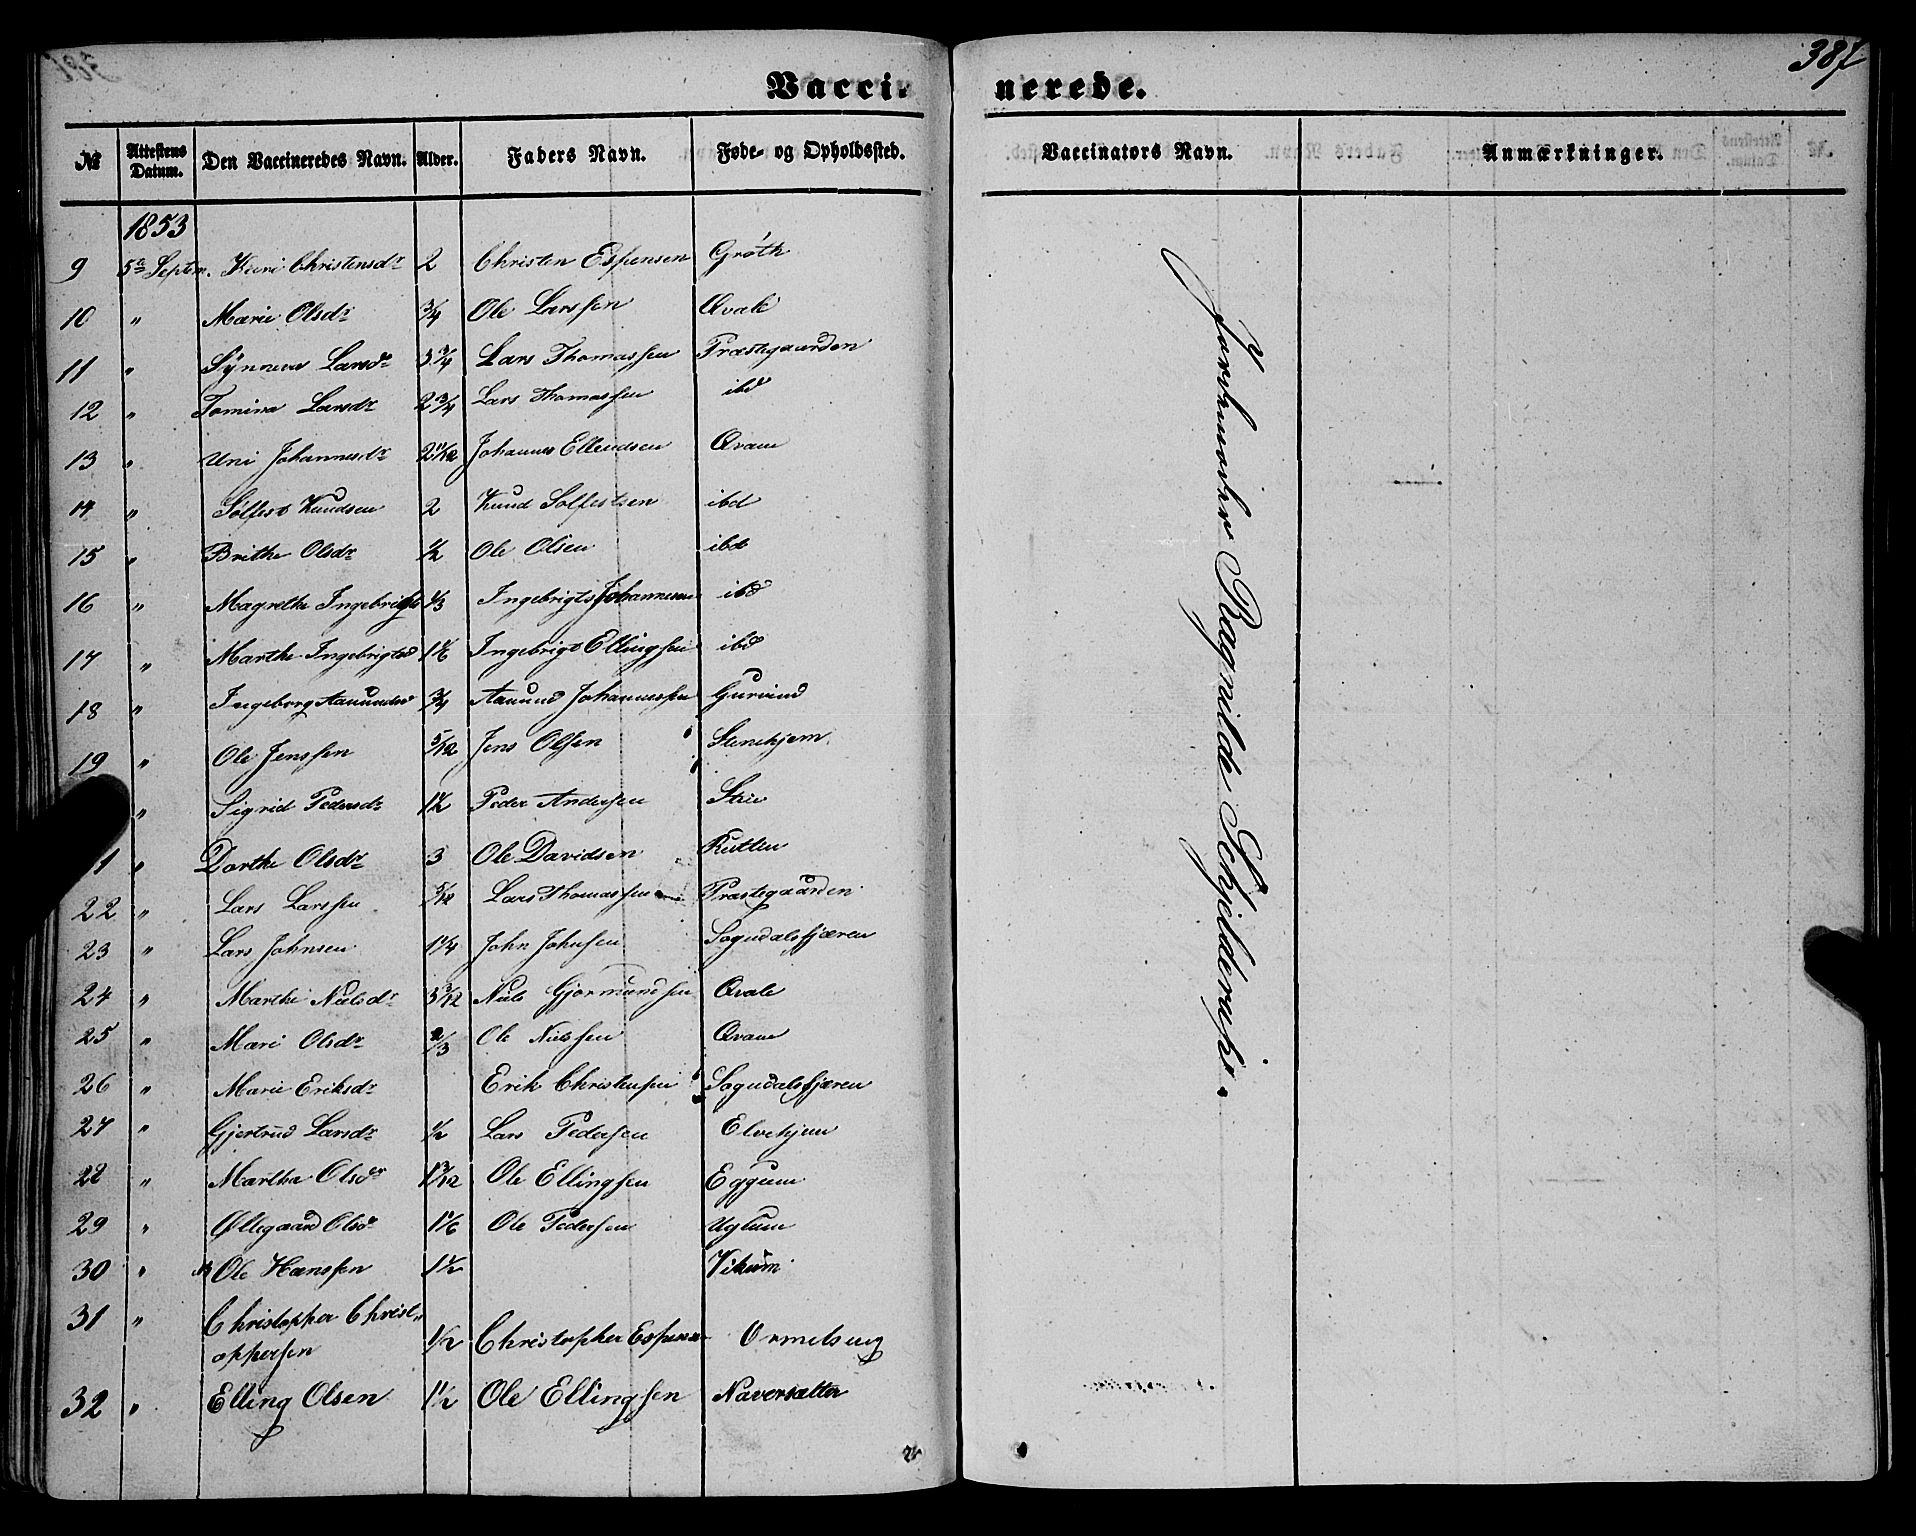 387
Vacci- nerede.
№ Attestens Datum. Den Vaccineredes Navn. Alder. Faders Navn. Føde- og Opholdssted. Vaccinators Navn. Anmærkninger.
1853
9 5te Septem. Kari Christensdr 2 Christen Espensen Gróth
10 " Marie Olsdr 3/4 Ole Larssen Qvale
11 " Synneva Larsdr 3 3/4 Lars Thomassen Præstegaarden
12 " Tomina Larsdr 2 3/4 Lars Thomassen ibd
13 " Uni Johannesdr 2 11/12 Johannes Ellendsen Qvam
14 " Sølfest Knudsen 2 Knud Solfestsen ibd
15 " Brithe Olsdr 1/2 Ole Olsen ibd
16 " Magrethe 1/3 Ingebrigts Johannesen ibd
17 " Marthe Ingebrigtsd 1 1/6 Ingebrigt Ellingsen ibd
18 " Ingeborg Aamundsd 3/4 Aamund Johannessen
19 " Ole Jenssen 5/12 Jens Olsen Stenehjem
" Sigrid Pedersdr 1 1/2 Peder Andersen
1 " Dorthe Olsdr 3 Ole Davidsen Rutlin
22 " Lars Larssen 5/12 Lars Thomassen Præstegaarden
23 " Lars Johnsen 1 1/4 John Johnsen Sogndalsfjæren
24 " Marthe Nielsdr 3 3/12 Niels Gjermundsen Qvale
25 " Mari Olsdr 2/3 Ole Nielssen Qvam
26 " Marie Eriksdr Erik Christensen Sogndalsfjæren
27 " Gjertrud Larsdr 1/2 Lars Pedersen Elvehjem
28 " Martha Olsdr 1 3/12 Ole Ellingsen Eggum
29 " Øllegaard Olsdr 1 1/6 Ole Pedersen Uglum
30 " Ole Hanssen 1 1/2 Vikum
31 " Christopher Christ-
oppersen 1/2 Christopher Espensen Ormelseng
32 " Elling Olsen 1 1/2 Ole Ellingsen Naversætter
Jordemoder Ragnilde Schjelderup.